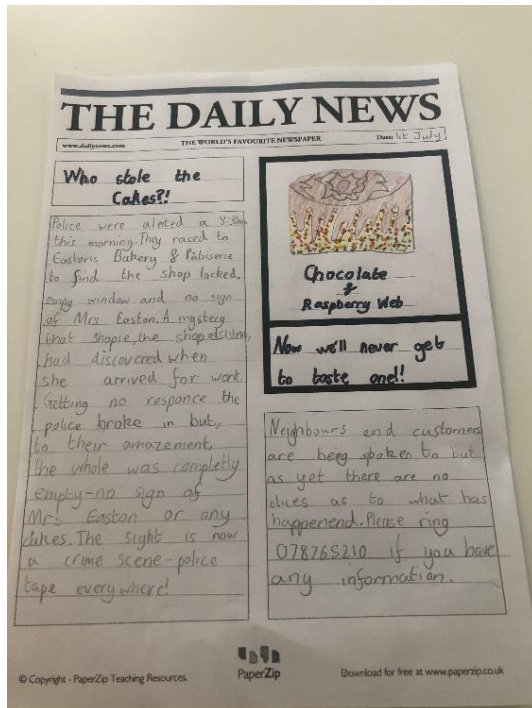 THE DAILY NEWS
www.dailynews.com
THE WORLD'S FAVOURITE NEWSPAPER
Date: 1st July
Who stole the
Cakes?!
Police were aleted a
this morning. They raced to
Eastons Bakery & Patisserie
to find the shop locked,
empy window and no sign
of Mrs Easton. A mystery
that shopie, the shop
had discovered when
she arrived for work.
Getting no responce the
police broke in but,
to their amazement,
the whole was completly
empty-no sign of
Mrs Easton or any
cakes. The sight is now
a crime scene-police
tape everywhere!
Chocolate
&
Raspberry Web
Now we'll never get
to taste one!!
Neighbours and customers
are being spoken to but
as yet there are no
clues as to what has
happenend. Please ring
078765210 if you have
any information.
© Copyright - PaperZip Teaching Resources.
PaperZip
Download for free at www.paperzip.co.uk